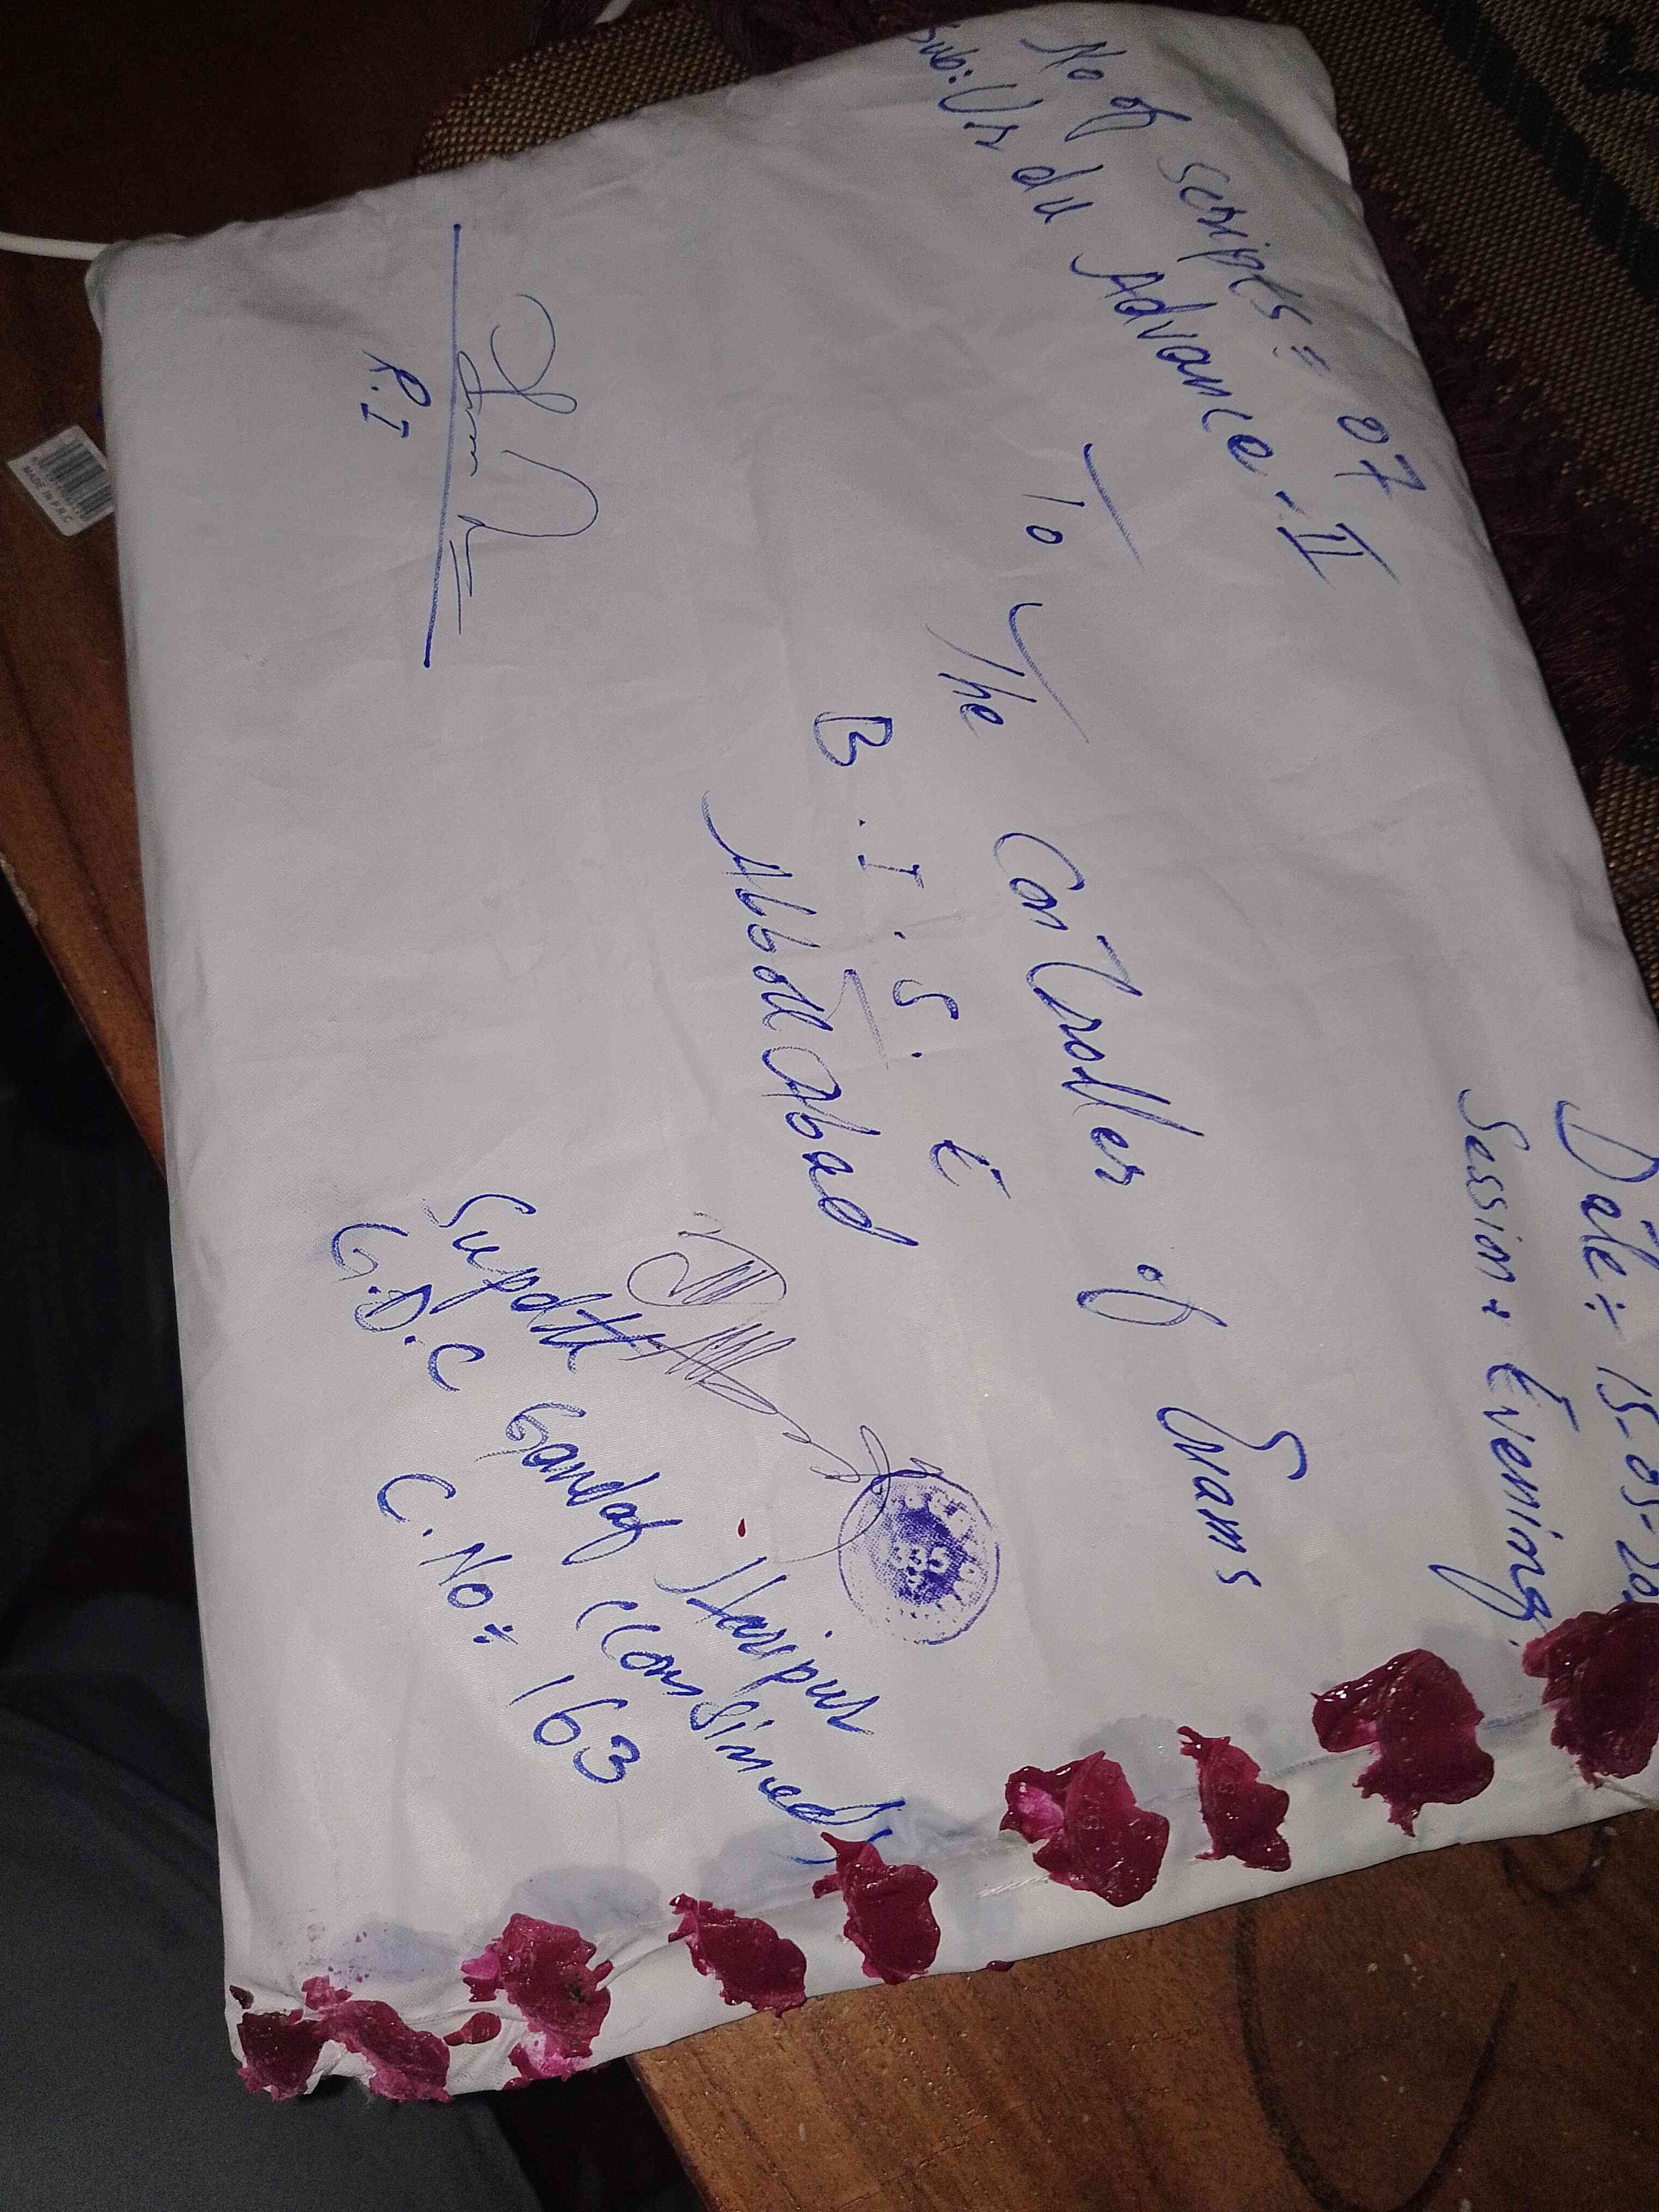 No of scripts = 07
Sub: Urdu Advance - II
Date:- 15-05-20
Session: Evening.
To The Controller of Exams
B.I.S.E
AbbottAbad
R.I
Supdtt
G.D.C Gandaf Haripur
(Combined)
C.No: 163
335
MADE IN P.R.C